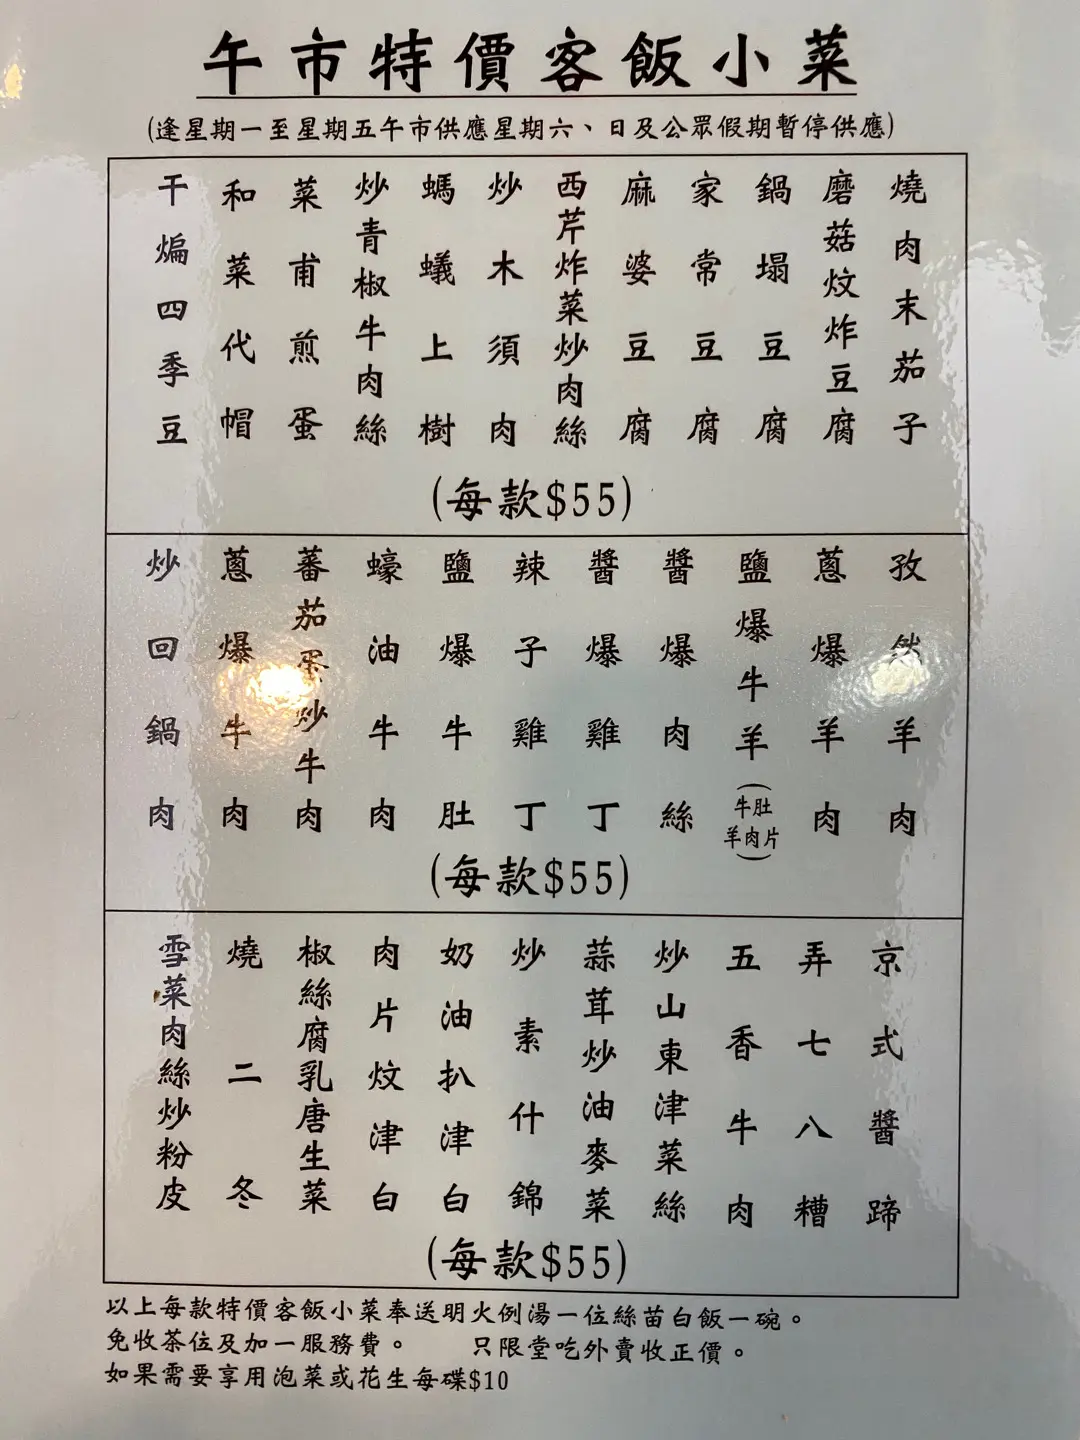 午市特價客飯小菜
(逢星期一至星期五午市供應星期六、日及公眾假期暫停供應)
燒肉末茄子
磨菇炆炸豆腐
鍋塌豆腐
家常豆腐
麻婆豆腐
西芹炸菜炒肉絲
炒木須肉
螞蟻上樹
炒青椒牛肉絲
菜甫煎蛋
和菜代帽
干煸四季豆
(每款$55)
孜然羊肉
蔥爆羊肉
鹽爆牛羊(牛肚羊肉片)
醬爆肉絲
醬爆雞丁
辣子雞丁
鹽爆牛肚
蠔油牛肉
蕃茄蛋炒牛肉
蔥爆牛肉
炒回鍋肉
(每款$55)
京式醬蹄
弄七八糟
五香牛肉
炒山東津菜絲
蒜茸炒油麥菜
炒素什錦
奶油扒津白
肉片炆津白
椒絲腐乳唐生菜
燒二冬
雪菜肉絲炒粉皮
(每款$55)
以上每款特價客飯小菜奉送明火例湯一位絲苗白飯一碗。
免收茶位及加一服務費。 只限堂吃外賣收正價。
如果需要享用泡菜或花生每碟$10